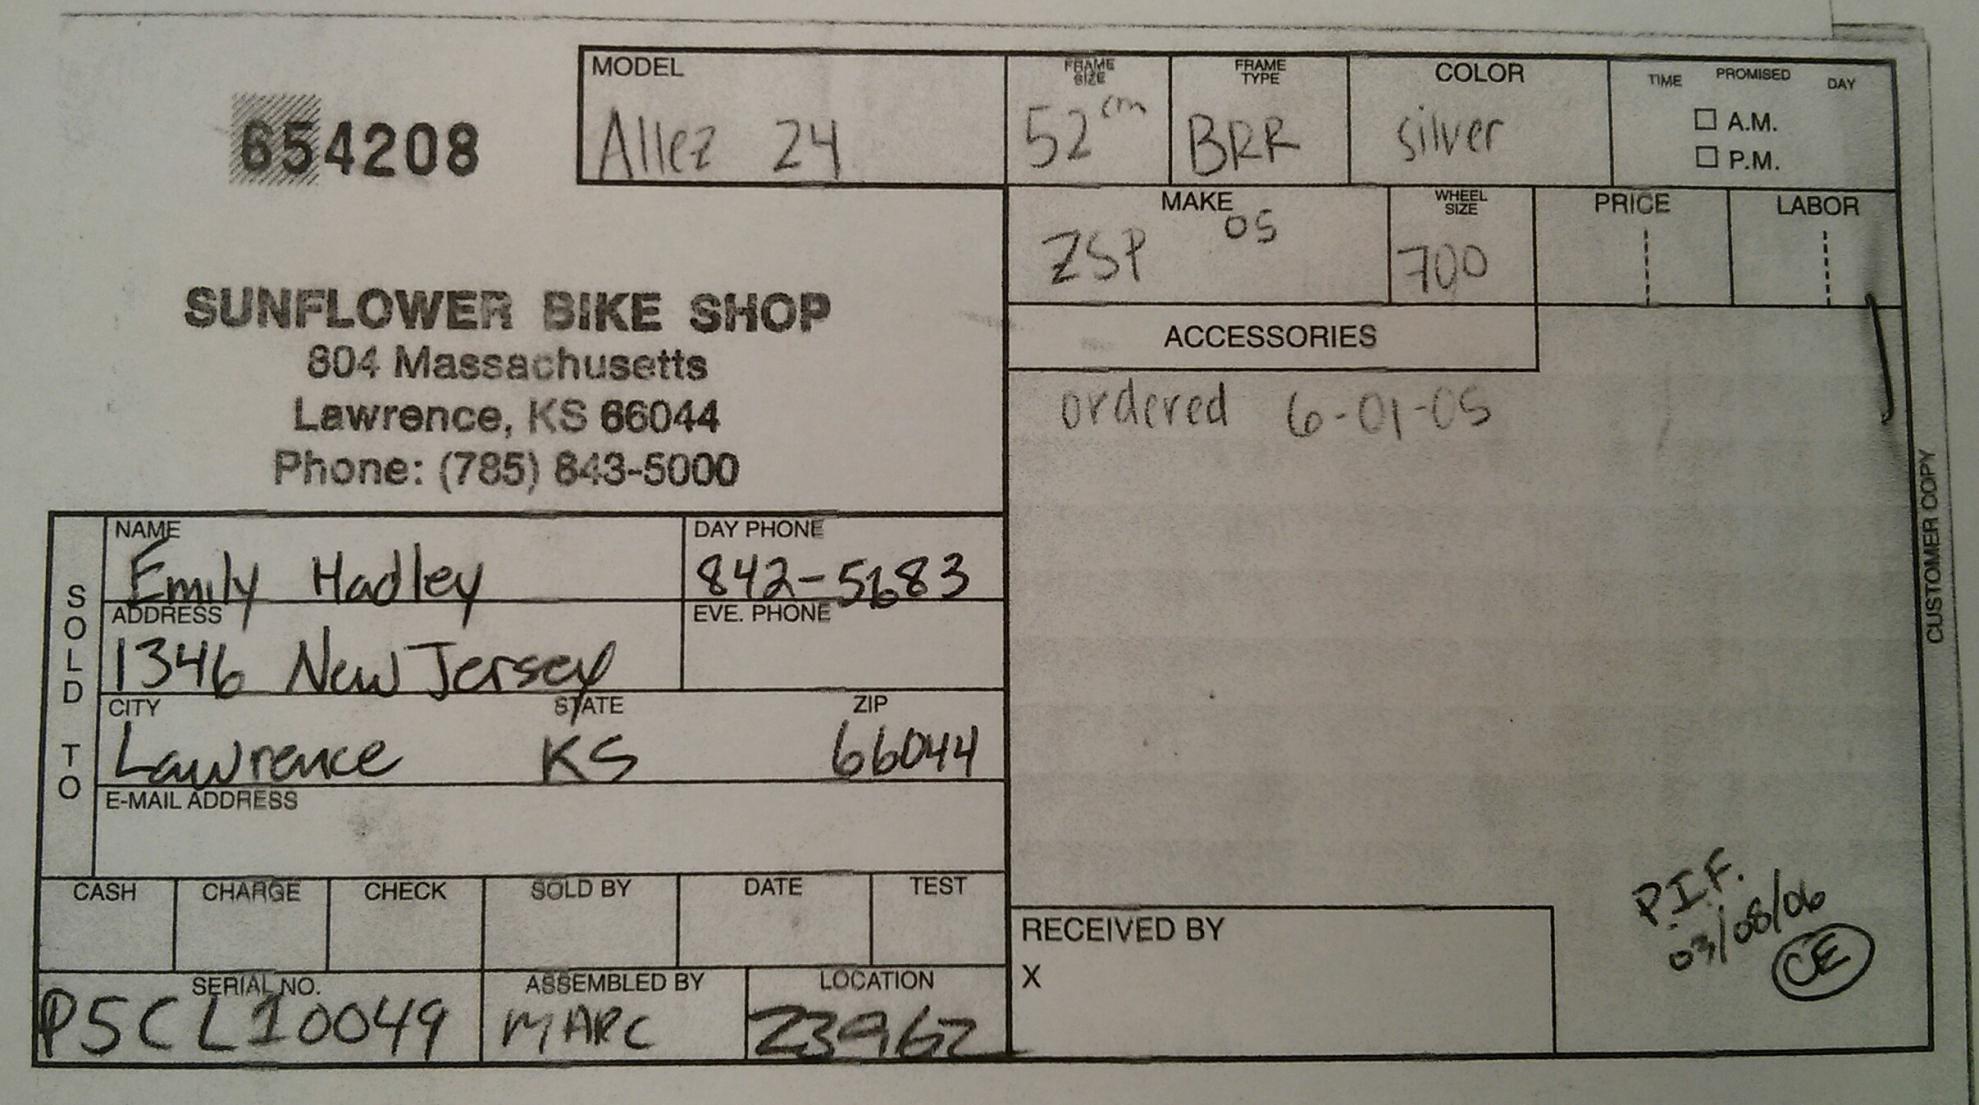 654208
MODEL
Allez 24
FRAME SIZE
52 cm
FRAME TYPE
BRR
COLOR
silver
TIME PROMISED DAY
A.M.
P.M.
MAKE
ZSP 05
WHEEL SIZE
700
PRICE
LABOR
SUNFLOWER BIKE SHOP
804 Massachusetts
Lawrence, KS 66044
Phone: (785) 843-5000
ACCESSORIES
ordered 6-01-05
CUSTOMER COPY
SOLD TO
NAME
Emily Hadley
DAY PHONE
842-5683
ADDRESS
1346 New Jersey
EVE. PHONE
CITY STATE ZIP
Lawrence KS 66044
E-MAIL ADDRESS
CASH CHARGE CHECK SOLD BY DATE TEST
SERIAL NO.
P5CL10049
ASSEMBLED BY
MARC
LOCATION
23962
RECEIVED BY
X
P.I.F.
03/08/06
CE